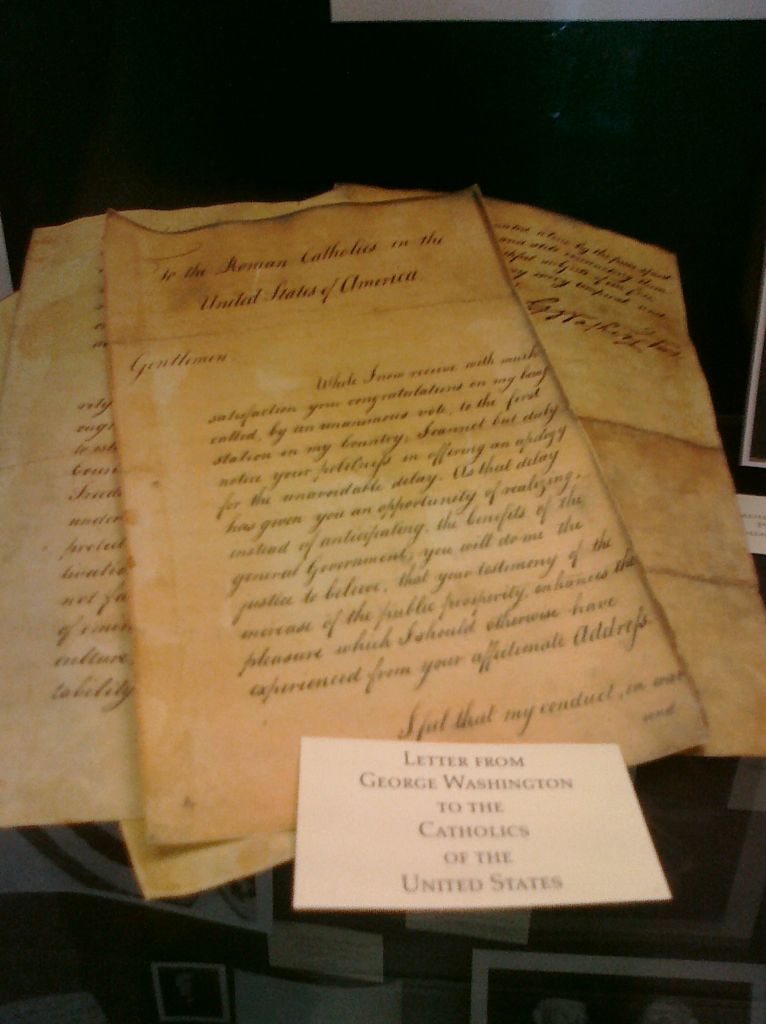 To the Roman Catholics in the
United States of America
Gentlemen
While I now receive with much
satisfaction your congratulations on my being
called, by an unanimous vote, to the first
station in my Country; I cannot but duly
notice your politeness in offering an apology
for the unavoidable delay. As that delay
has given you an opportunity of realizing,
instead of anticipating, the benefits of the
general Government; you will do me the
justice to believe, that your testimony of the
increase of the public prosperity, enhances the
pleasure which I should otherwise have
experienced from your affectionate Address.
I feel that my conduct, in war
and
under
protect
not fa
culture
tability
G Washington
LETTER FROM
GEORGE WASHINGTON
TO THE
CATHOLICS
OF THE
UNITED STATES